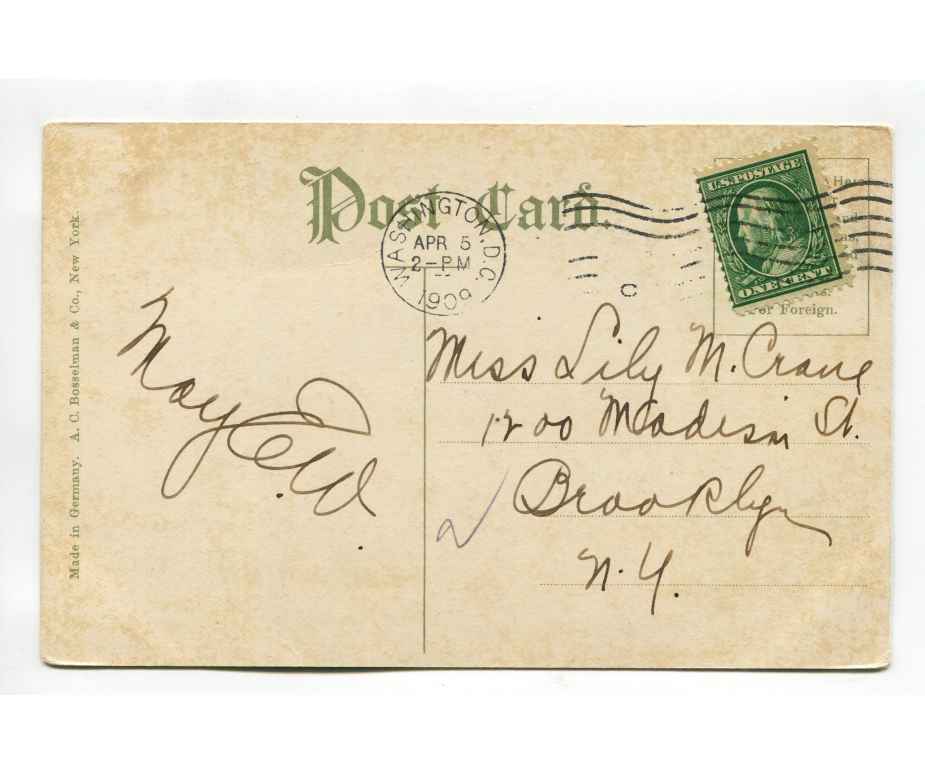 Post Card.
WASHINGTON, D.C.
APR 5
2-PM
1909
C
U.S. POSTAGE
ONE CENT
Here
For Foreign.
Made in Germany. A. C. Bosselman & Co., New York.
May E. W.
Miss Lily M. Crane
1200 Madison St.
Brooklyn
N.Y.
2